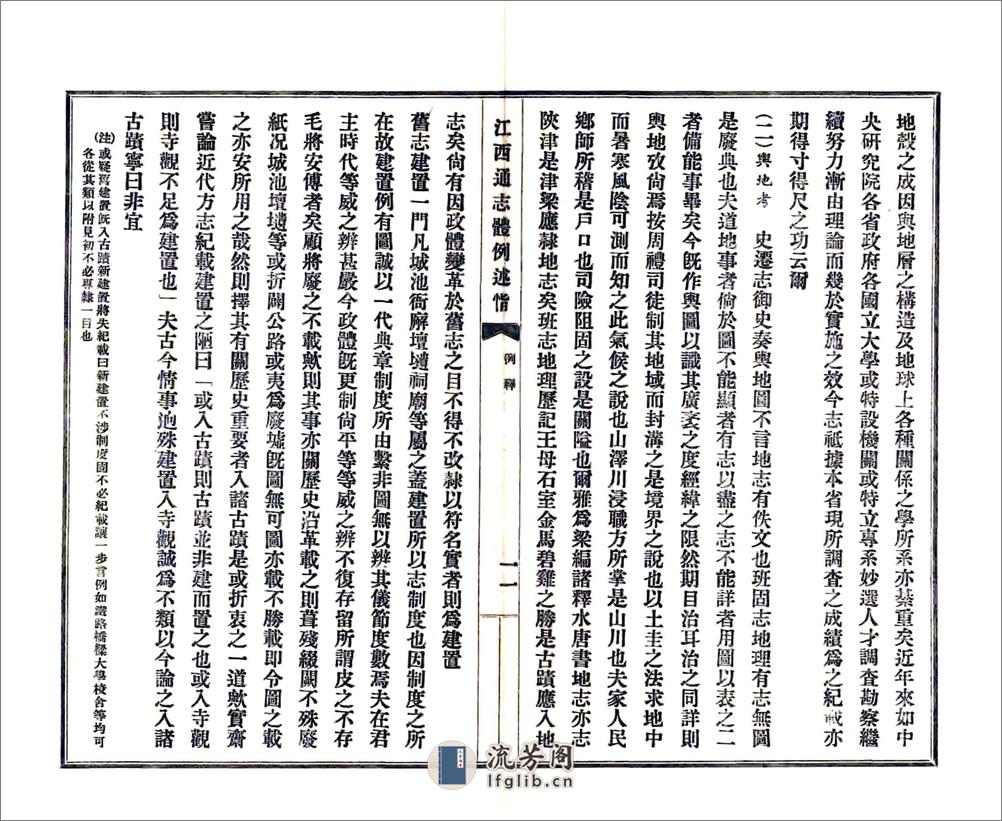 地殼之成因與地層之構造及地球上各種關係之學所系亦綦重矣近年來如中
央研究院各省政府各國立大學或特設機關或特立專系妙選人才調查勘察繼
續努力漸由理論而幾於實施之效今志祇據本省現所調查之成績爲之紀載亦
期得寸得尺之功云爾
(二)輿地考 史遷志御史奏輿地圖不言地志有佚文也班固志地理有志無圖
是廢典也夫道地事者倘於圖不能顯者有志以盡之志不能詳者用圖以表之二
者備能事畢矣今旣作輿圖以識其廣袤之度經緯之限然期目治耳治之同詳則
輿地攷尙焉按周禮司徒制其地域而封溝之是境界之說也以土圭之法求地中
而暑寒風陰可測而知之此氣候之說也山澤川浸職方所掌是山川也夫家人民
鄉師所稽是戶口也司險阻固之設是關隘也爾雅爲梁編諸釋水唐書地志亦志
陝津是津梁應隸地志矣班志地理歷記王母石室金馬碧雞之勝是古蹟應入地
江西通志體例述恉
例釋
一一
志矣尙有因政體變革於舊志之目不得不改隸以符名實者則爲建置
舊志建置一門凡城池衙廨壇壝祠廟等屬之蓋建置所以志制度也因制度之所
在故建置例有圖誠以一代典章制度所由繫非圖無以辨其儀節度數焉夫在君
主時代等威之辨甚嚴今政體旣更制尙平等等威之辨不復存留所謂皮之不存
毛將安傅者矣顧將廢之不載歟則其事亦關歷史沿革載之則葺殘綴闕不殊廢
紙况城池壇壝等或折闢公路或夷爲廢墟旣圖無可圖亦載不勝載即令圖之載
之亦安所用之哉然則擇其有關歷史重要者入諸古蹟是或折衷之一道歟實齋
嘗論近代方志紀載建置之陋曰「或入古蹟則古蹟並非建而置之也或入寺觀
則寺觀不足爲建置也」夫古今情事逈殊建置入寺觀誠爲不類以今論之入諸
古蹟寧曰非宜
(注)或疑舊建置旣入古蹟新建置將失紀載曰新建置不涉制度固不必紀載讓一步言例如鐵路橋樑大學校舍等均可
各從其類以附見初不必專隸一目也
流芳阁
lfglib.cn